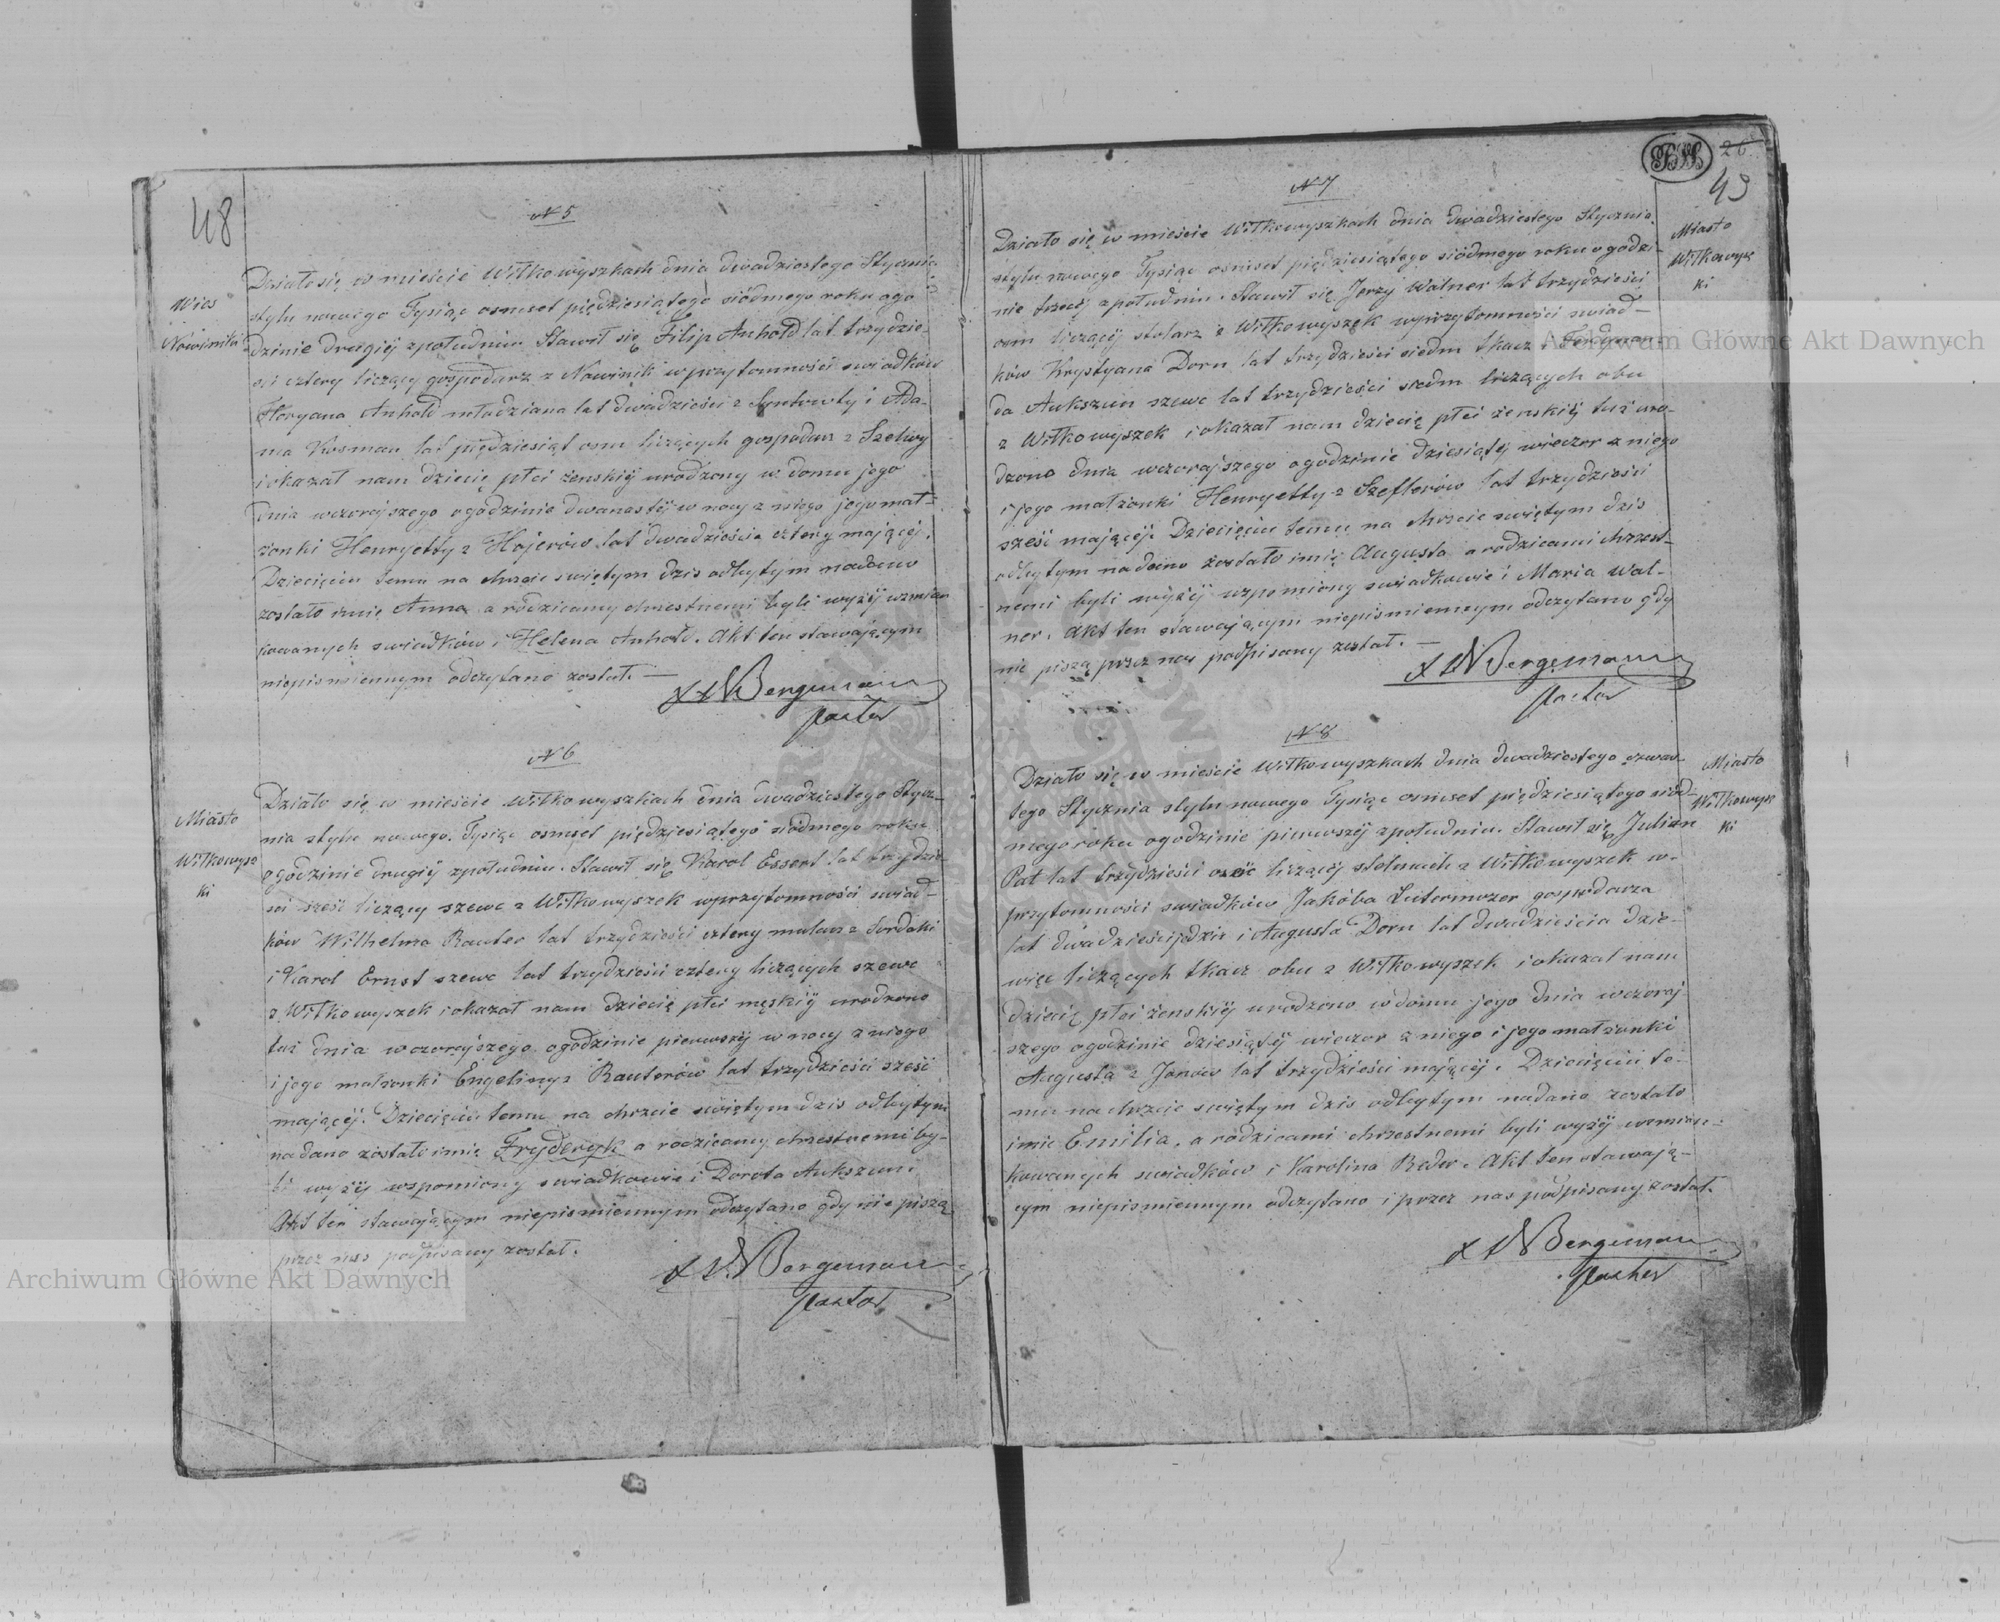 48
N 5
Wies
Nowiniki
Działo się w mieście Wiłkowyszkach dnia dwudziestego Stycznia
stylu nowego Tysiąc osmset pięćdziesiątego siódmego roku ogo
dzinie drugiéj zpołudniu. Stawił się Filip Anhold lat trzydzie-
sci cztery liczący gospodarz z Nowinik wprzytomności swiadków
Floryana Anhold młodziana lat dwadzieści z i Ada-
ma Kosman lat pięćdziesiąt osm liczących gospodarz z Szelwy
i okazał nam dziecię płci żenskiéj urodzony w domu jego
dnia wczorajszego ogodzinie dwanastéj w nocy z niego jego mał-
żonki Henryetty z Hojerów lat dwadzieścia cztery mającéj.
Dziecięciu temu na chrzcie swiętym dzis odbytym nadano
zostało imie Anna a rodzicamy chrzestnemi byli wyżéj wzmian
kowanych swiadków i Helena Anhold. Akt ten stawającym
niepismiennym odczytano został. —
Bergemann
Pastor
N 6
Miasto
Wiłkowysz
ki
Działo się w mieście Wiłkowyszkach dnia dwadziestego Stycz-
nia stylu nowego. Tysiąc osmset pięćdziesiątego siódmego roku
ogodzinie drugiéj zpołudniu. Stawił się Karol Essert lat trzydzie-
sci szesć liczący szewc z Wiłkowyszek wprzytomności swiad-
ków Wilhelma Rauter lat trzydzieści cztery mularz z Serdaki
i Karol Ernst szewc lat trzydzieści cztery liczących szewc
z Wiłkowyszek i okazał nam dziecię płci męskiéj urodzono
tuż dnia wczorajszego ogodzinie pierwszéj w nocy z niego
i jego małzonki Engeliny z Rauterów lat trzydzieści szesć
mającéj. Dziecięciu temu na chrzcie swiętym dzis odbytym
nadano zostało imie Fryderyk a rodzicamy chrzestnemi by-
li wyżéj wspomiony swiadkowie i Dorota Aukszun.
Akt ten stawającym niepismiennym odczytano gdy nie piszą
przez nas podpisany został.
Bergemann
Pastor
26
49
N 7
Miasto
Wiłkowysz
ki
Działo się w mieście Wiłkowyszkach dnia dwadziestego Stycznia
stylu nowego Tysiąc osmset pięćdziesiątego siódmego roku ogodzi-
nie trzeciéj zpołudniu. Stawił się Jerzy Walner lat trzydzieści
osm liczącéj stolarz z Wiłkowyszek wprzytomności swiad-
ków Krystyana Dorn lat trzydzieści siedm tkacz i Ferdynan-
da Aukszun szewc lat trzydzieści siedm liczących obu
z Wiłkowyszek i okazał nam dziecię płci żenskiéj tuż uro-
dzono dnia wczorajszego ogodzinie dziesiątéj wieczor z niego
i jego małżonki Henryetty z Szeflerów lat trzydzieści
sześć mającéj. Dziecięciu temu na chrzcie swiętym dzis
odbytym nadano zostało imie Augusta a rodzicami chrzest-
nemi byli wyżéj wspomiony swiadkowie i Maria Wal-
ner. Akt ten stawającym niepismiennym odczytano gdy
nie piszą przez nas podpisany został. —
Bergemann
Pastor
N 8
Miasto
Wiłkowysz
ki
Działo się w mieście Wiłkowyszkach dnia dwadziestego czwar-
tego Stycznia stylu nowego Tysiąc osmset pięćdziesiątego siód-
mego roku ogodzinie pierwszéj zpołudniu. Stawił się Julian
Pat lat trzydzieści liczącéj stelmach z Wiłkowyszek w-
przytomności swiadków Jakóba gospodarza
lat dwadzieści i Augusta Dorn lat dwadzieścia dzie-
więc liczących tkacz obu z Wiłkowyszek i okazał nam
dziecię płci żenskiéj urodzono w domu jego dnia wczoraj-
szego ogodzinie dziesiątéj wieczor z niego i jego małzonki
Augusta z Janów lat trzydzieści mającéj. Dziecięciu te-
mu na chrzcie swiętym dzis odbytym nadano zostało
imie Emilia, a rodzicami chrzestnemi byli wyżéj wzmian-
kowanych swiadków i Karolina Reder. Akt ten stawają-
cym niepismiennym odczytano i przez nas podpisany został.
Bergemann
Pastor
Archiwum Główne Akt Dawnych
Archiwum Główne Akt Dawnych